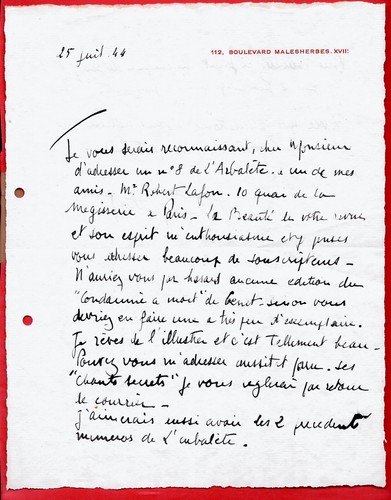 25 juil. 44
112, BOULEVARD MALESHERBES. XVII:
Je vous serais reconnaissant, cher Monsieur
d'adresser un n° 8 de l'Arbalète. a un de mes
amis - Mr Robert Lafon. 10 quai de la
Megisserie a Paris - La Beauté de votre revue
et son esprit m'enthousiasme et je pense
vous adresser beaucoup de souscripteurs -
N'auriez vous par hasard aucune edition du
"Condamné a mort" de Genet - sinon vous
devriez en faire une a très peu d'exemplaire.
Je rêves de l'illustrer et c'est Tellement beau -
Pouvez vous m'adresser aussitot paru. ses
"Chants secrets" je vous reglerai par retour
le courrier -
j'aimerais aussi avoir les 2 precedents
numeros de L'arbalète.